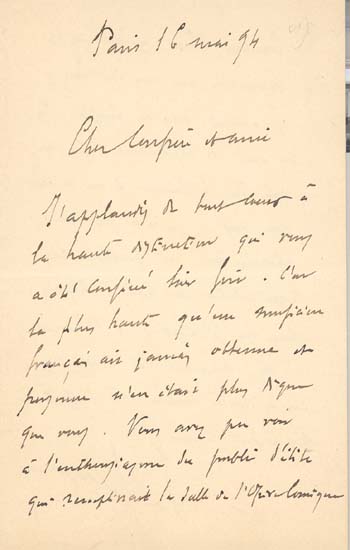 Paris 16 mai 94
Cher Confrère et ami
J'applaudis de tout cœur à
la haute distinction qui vous
a été conférée hier soir. C'est
la plus haute qu'un musicien
français ait jamais obtenue et
personne n'en était plus digne
que vous. Vous avez pu voir
à l'enthousiasme du public d'élite
qui remplissait la salle de l'Opéra Comique